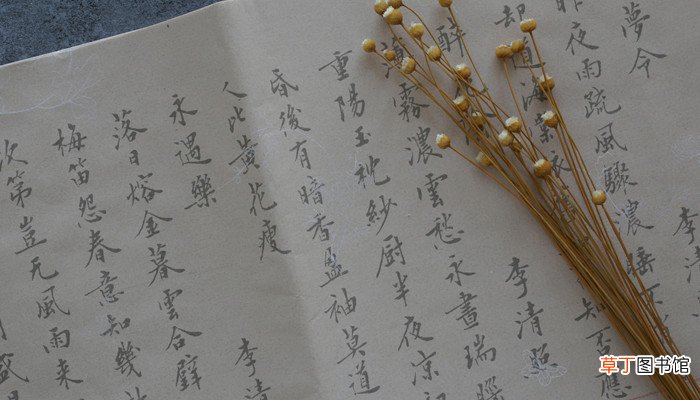 夢令 李清
昨夜雨疏風驟濃睡不
却道海棠依 知否應
醉 李清照
薄霧濃雲愁永晝瑞腦
重陽玉枕紗厨半夜凉初
昏後有暗香盈袖莫道
人比黃花瘦
永遇樂 李清
落日熔金暮雲合璧
梅笛怨春意知幾許
次第豈无風雨来
盛
草丁图书馆